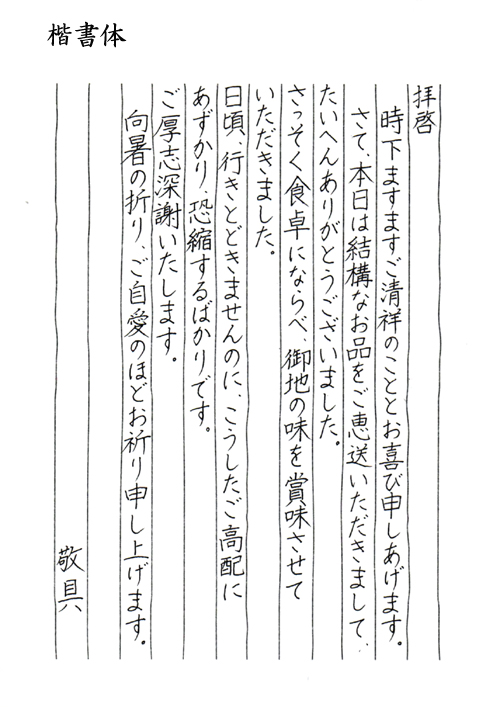 楷書体
拝啓
時下ますますご清祥のこととお喜び申しあげます。
さて、本日は結構なお品をご恵送いただきまして、
たいへんありがとうございました。
さっそく食卓にならべ、御地の味を賞味させて
いただきました。
日頃、行きとどきませんのに、こうしたご高配に
あずかり、恐縮するばかりです。
ご厚志深謝いたします。
向暑の折り、ご自愛のほどお祈り申し上げます。
敬具